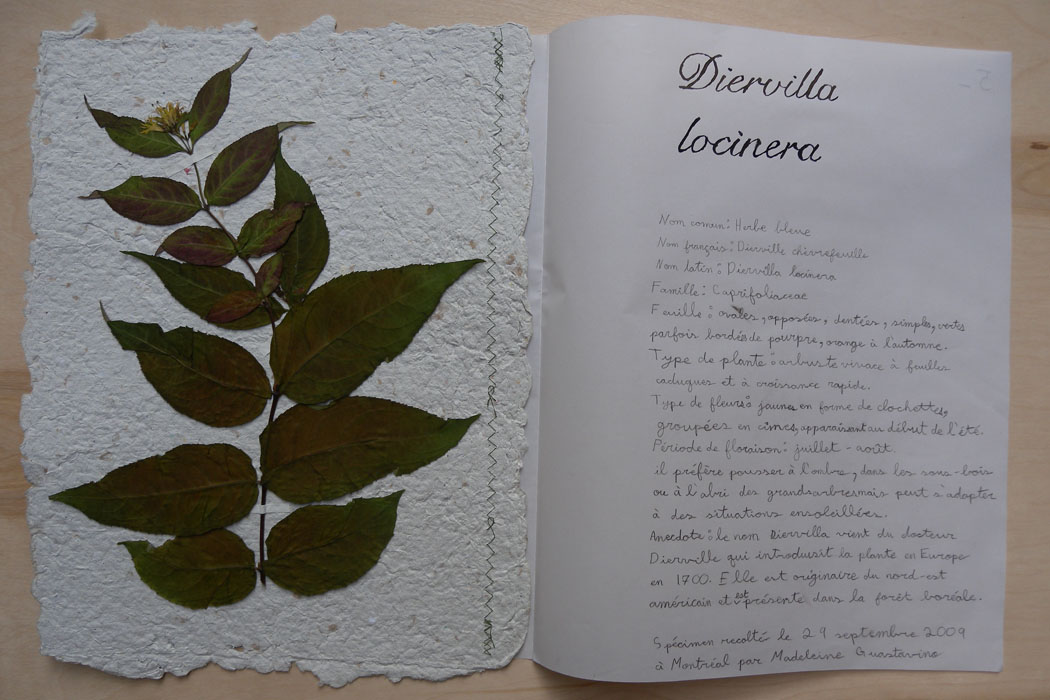 Diervilla
locinera
Nom comun : Herbe bleue
Nom français : Dierville chèvrefeuille
Nom latin : Diervilla locinera
Famille : Caprifoliaceae
Feuille : ovales, opposées, dentées, simples, vertes
parfois bordés de pourpre, orange à l'automne.
Type de plante : arbuste vivace à feuilles
caduques et à croissance rapide.
Type de fleurs : jaunes en forme de clochettes,
groupées en cimes, apparaissant au début de l'été.
Période de floraison : juillet - août.
il préfère pousser à l'ombre, dans les sous-bois
ou à l'abri des grands arbres mais peut s'adapter
à des situations ensoleillées.
Anecdote : le nom Diervilla vient du docteur
Dierville qui introduisit la plante en Europe
en 1700. Elle est originaire du nord-est
américain et est présente dans la forêt boréale.
Spécimen recolté le 29 septembre 2009
à Montréal par Madeleine Guastavino